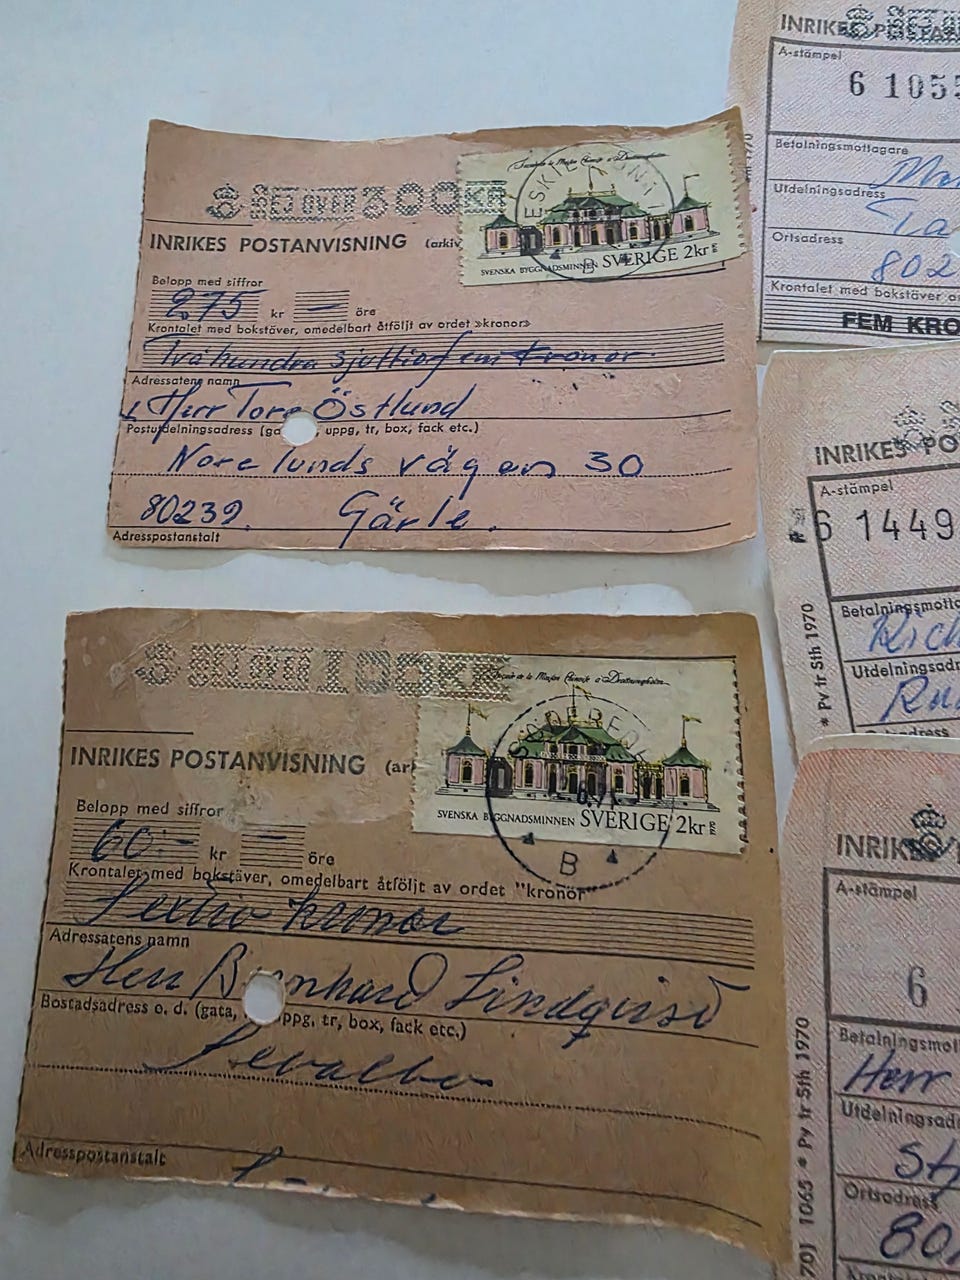 EJ ÖVER 300KR
INRIKES POSTANVISNING (arkiv
Façade de la Maison Chinoise à Drottningholm
SVENSKA BYGGNADSMINNEN SVERIGE 2kr
ESKILSTUNA 1
B
Belopp med siffror
275 kr — öre
Krontalet med bokstäver, omedelbart åtföljt av ordet »kronor»
Tvåhundra sjuttiofem kronor.
Adressatens namn
Herr Tore Östlund
Postutdelningsadress (ga uppg, tr, box, fack etc.)
Norrlunds vägen 30
80239. Gävle.
Adresspostanstalt
EJ ÖVER 100KR
INRIKES POSTANVISNING (ar
Façade de la Maison Chinoise à Drottningholm
SVENSKA BYGGNADSMINNEN SVERIGE 2kr
B
Belopp med siffror
60:- kr — öre
Krontalet med bokstäver, omedelbart åtföljt av ordet "kronor
Sextio kronor
Adressatens namn
Herr B nhard Lindqvist
Bostadsadress o. d. (gata, ppg, tr, box, fack etc.)
Adresspostanstalt
INRIKES POSTAN
A-stämpel
6 1055
Betalningsmottagare
Utdelningsadress
Ortsadress
802
Krontalet med bokstäver
FEM KRO
INRIKES PO
A-stämpel
6 1449
Betalningsmotta
Rich
Utdelningsadr
* Pv tr Sth 1970
INRIK
A-stämpel
6
Betalningsmot
Herr
Utdelningsad
Ortsadress
80
70) 1065 * Pv tr Sth 1970